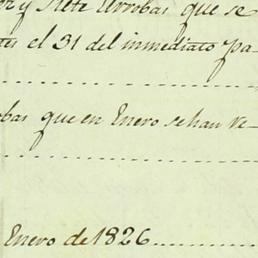 y Siete Arrobas que se
el 31 del inmediato pa-
que en Enero se han ve-
Enero de 1826